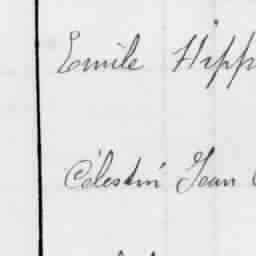 Emile Hipp
Célestin Jean